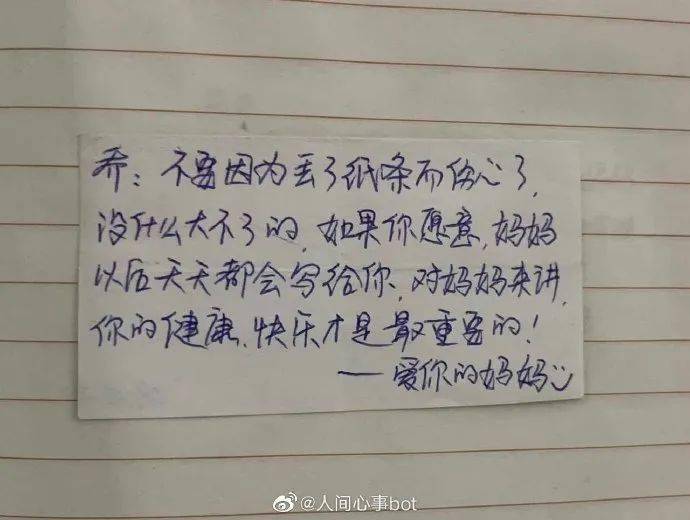 乔：不要因为丢了纸条而伤心了，
没什么大不了的，如果你愿意，妈妈
以后天天都会写给你，对妈妈来讲，
你的健康、快乐才是最重要的！
——爱你的妈妈
@人间心事bot